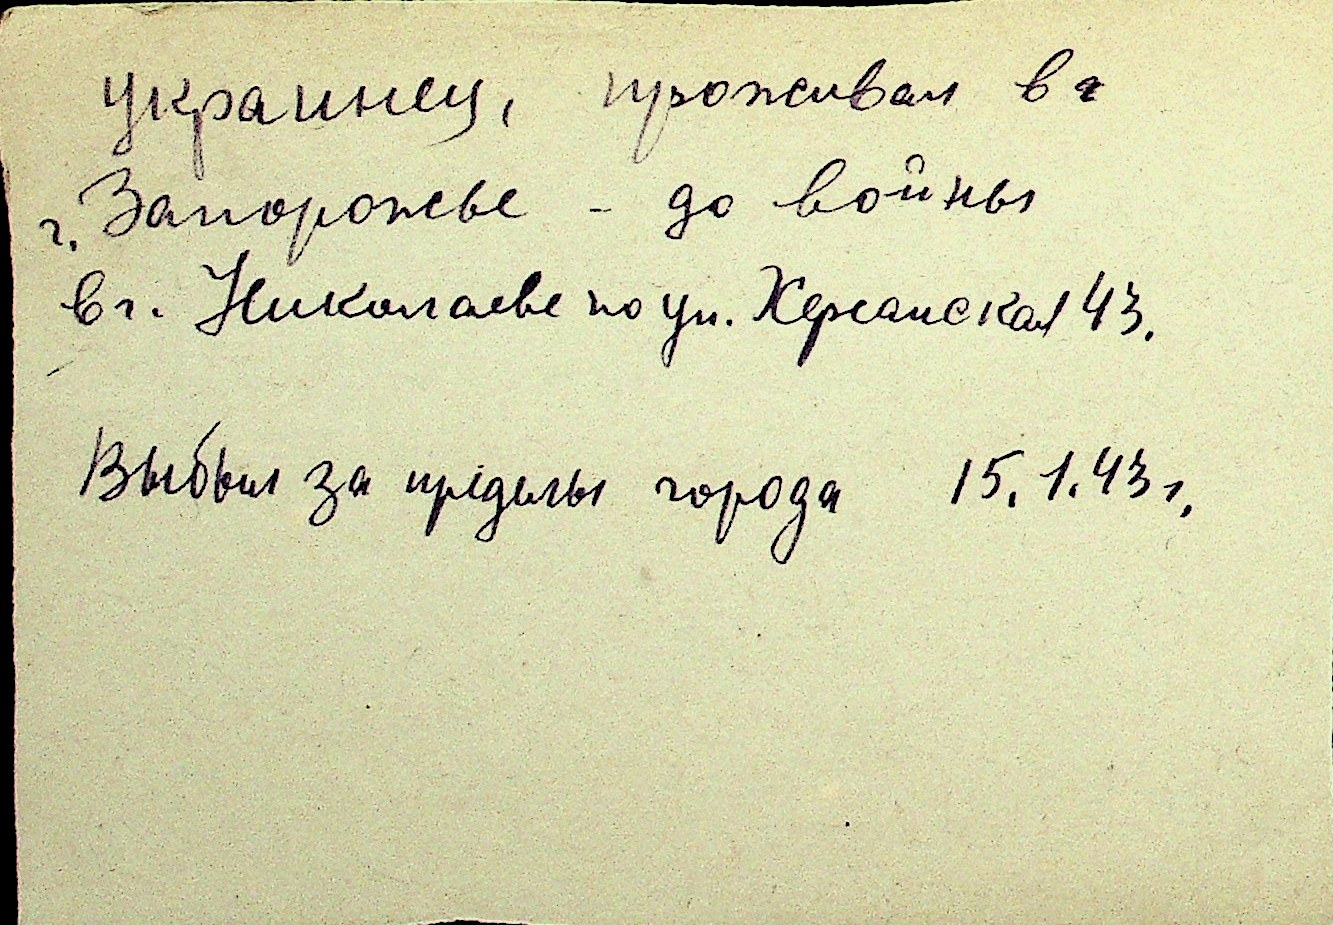 украинец, проживал в г
г. Запорожье - до войны
в г. Николаеве по ул. Херсанская 43.
Выбыл за пределы города 15.1.43 г.